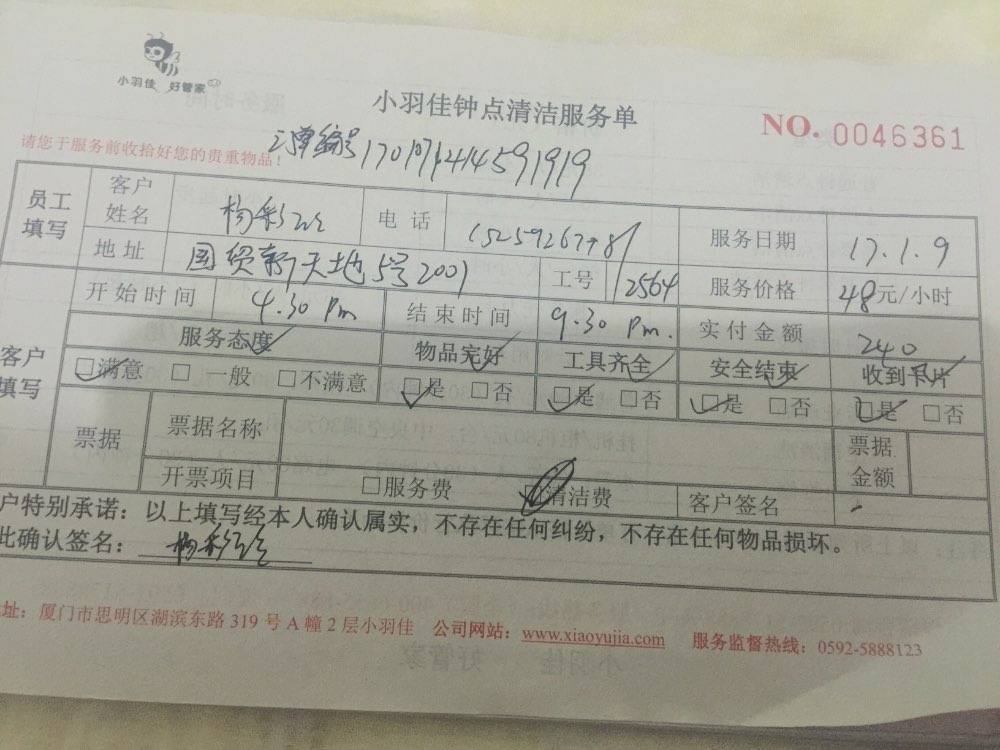 小羽佳 好管家
小羽佳钟点清洁服务单
NO. 0046361
请您于服务前收拾好您的贵重物品！
订单编号 170107121414591919
员工填写 客户姓名 杨彩 电话 服务日期 17.1.9
地址 国贸新天地5号2001 工号 12564 服务价格 48元/小时
开始时间 4.30 Pm 结束时间 9.30 Pm. 实付金额 240
客户填写 服务态度 物品完好 工具齐全 安全结束 收到卡片
□满意 □一般 □不满意 □是 □否 □是 □否 □是 □否 □是 □否
票据 票据名称 票据金额
开票项目 □服务费 □清洁费 客户签名
户特别承诺：以上填写经本人确认属实，不存在任何纠纷，不存在任何物品损坏。
此确认签名： 杨彩
址：厦门市思明区湖滨东路319号A幢2层小羽佳 公司网站：www.xiaoyujia.com 服务监督热线：0592-5888123